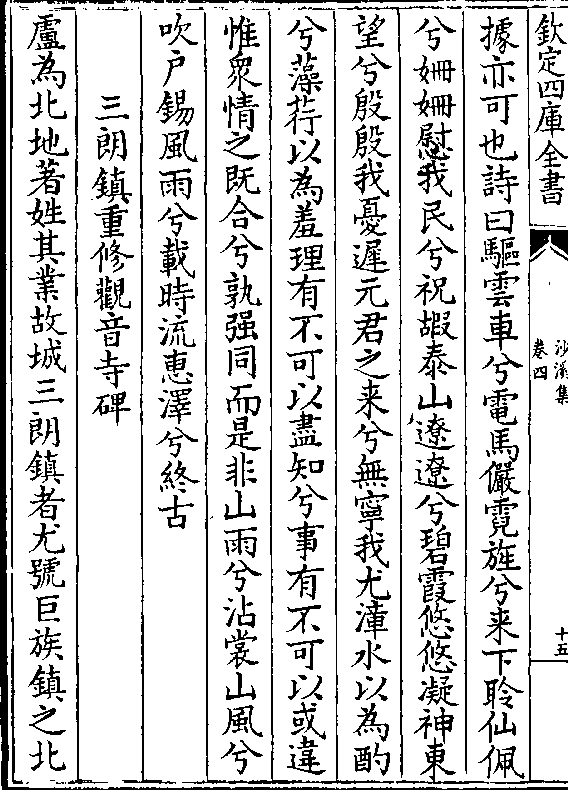 欽定四庫全書
沙溪集
卷四
十五
據亦可也詩曰驅雲車兮電馬儼霓旌兮来下聆仙佩
兮姍姍慰我民兮祝嘏泰山遼遼兮碧霞悠悠凝神東
望兮殷殷我憂遲元君之来兮無寧我尤漳水以為酌
兮藻荇以為羞理有不可以盡知兮事有不可以或違
惟衆情之既合兮孰强同而是非山雨兮沾裳山風兮
吹户錫風雨兮載時流惠澤兮終古
三朗鎮重修觀音寺碑
盧為北地著姓其業故城三朗鎮者尤號巨族鎮之北